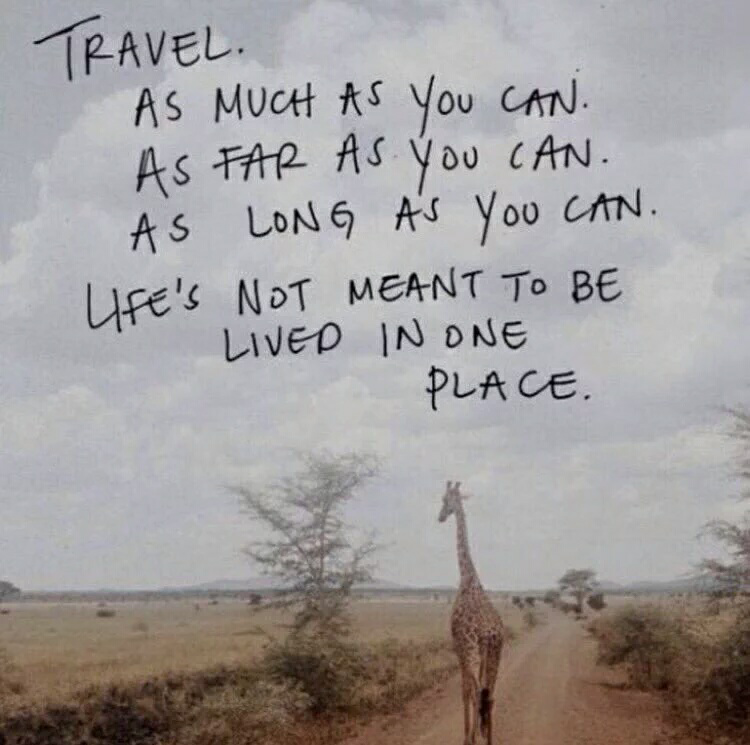 TRAVEL.
AS MUCH AS YOU CAN.
AS FAR AS YOU CAN.
AS LONG AS YOU CAN.
LIFE'S NOT MEANT TO BE
LIVED IN ONE
PLACE.